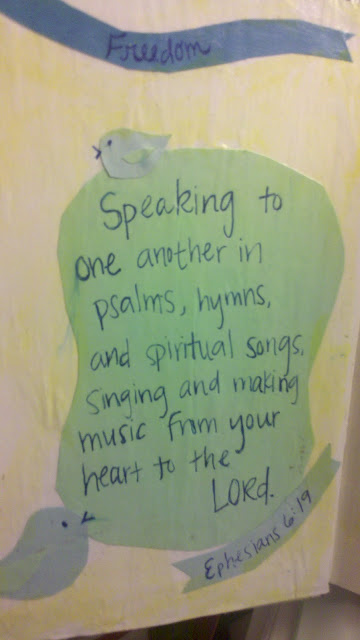 Freedom
Speaking to
one another in
psalms, hymns,
and spiritual songs,
singing and making
music from your
heart to the
LORd.
Ephesians 6:19